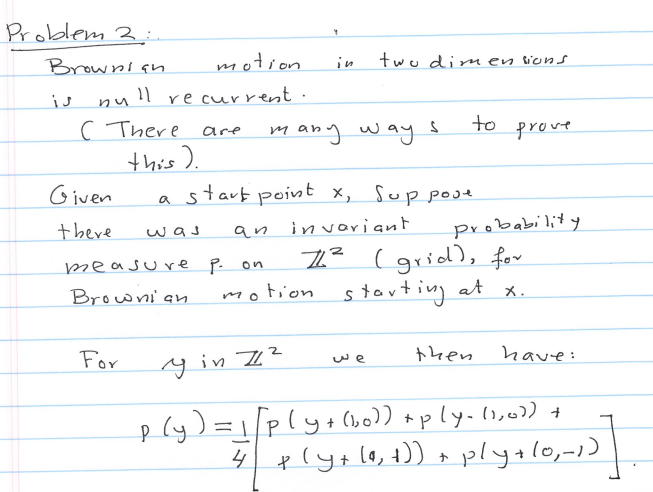 Problem 2:.
Brownian motion in two dimensions
is null recurrent.
( There are many ways to prove
this ).
Given a start point x, Suppose
there was an invariant probability
measure p. on ℤ² ( grid ), for
Brownian motion starting at x.
For y in ℤ² we then have:
p(y) = 1/4 [ p( y + (1,0)) + p( y - (1,0)) +
p( y + (0,1)) + p( y + (0,-1)) ].